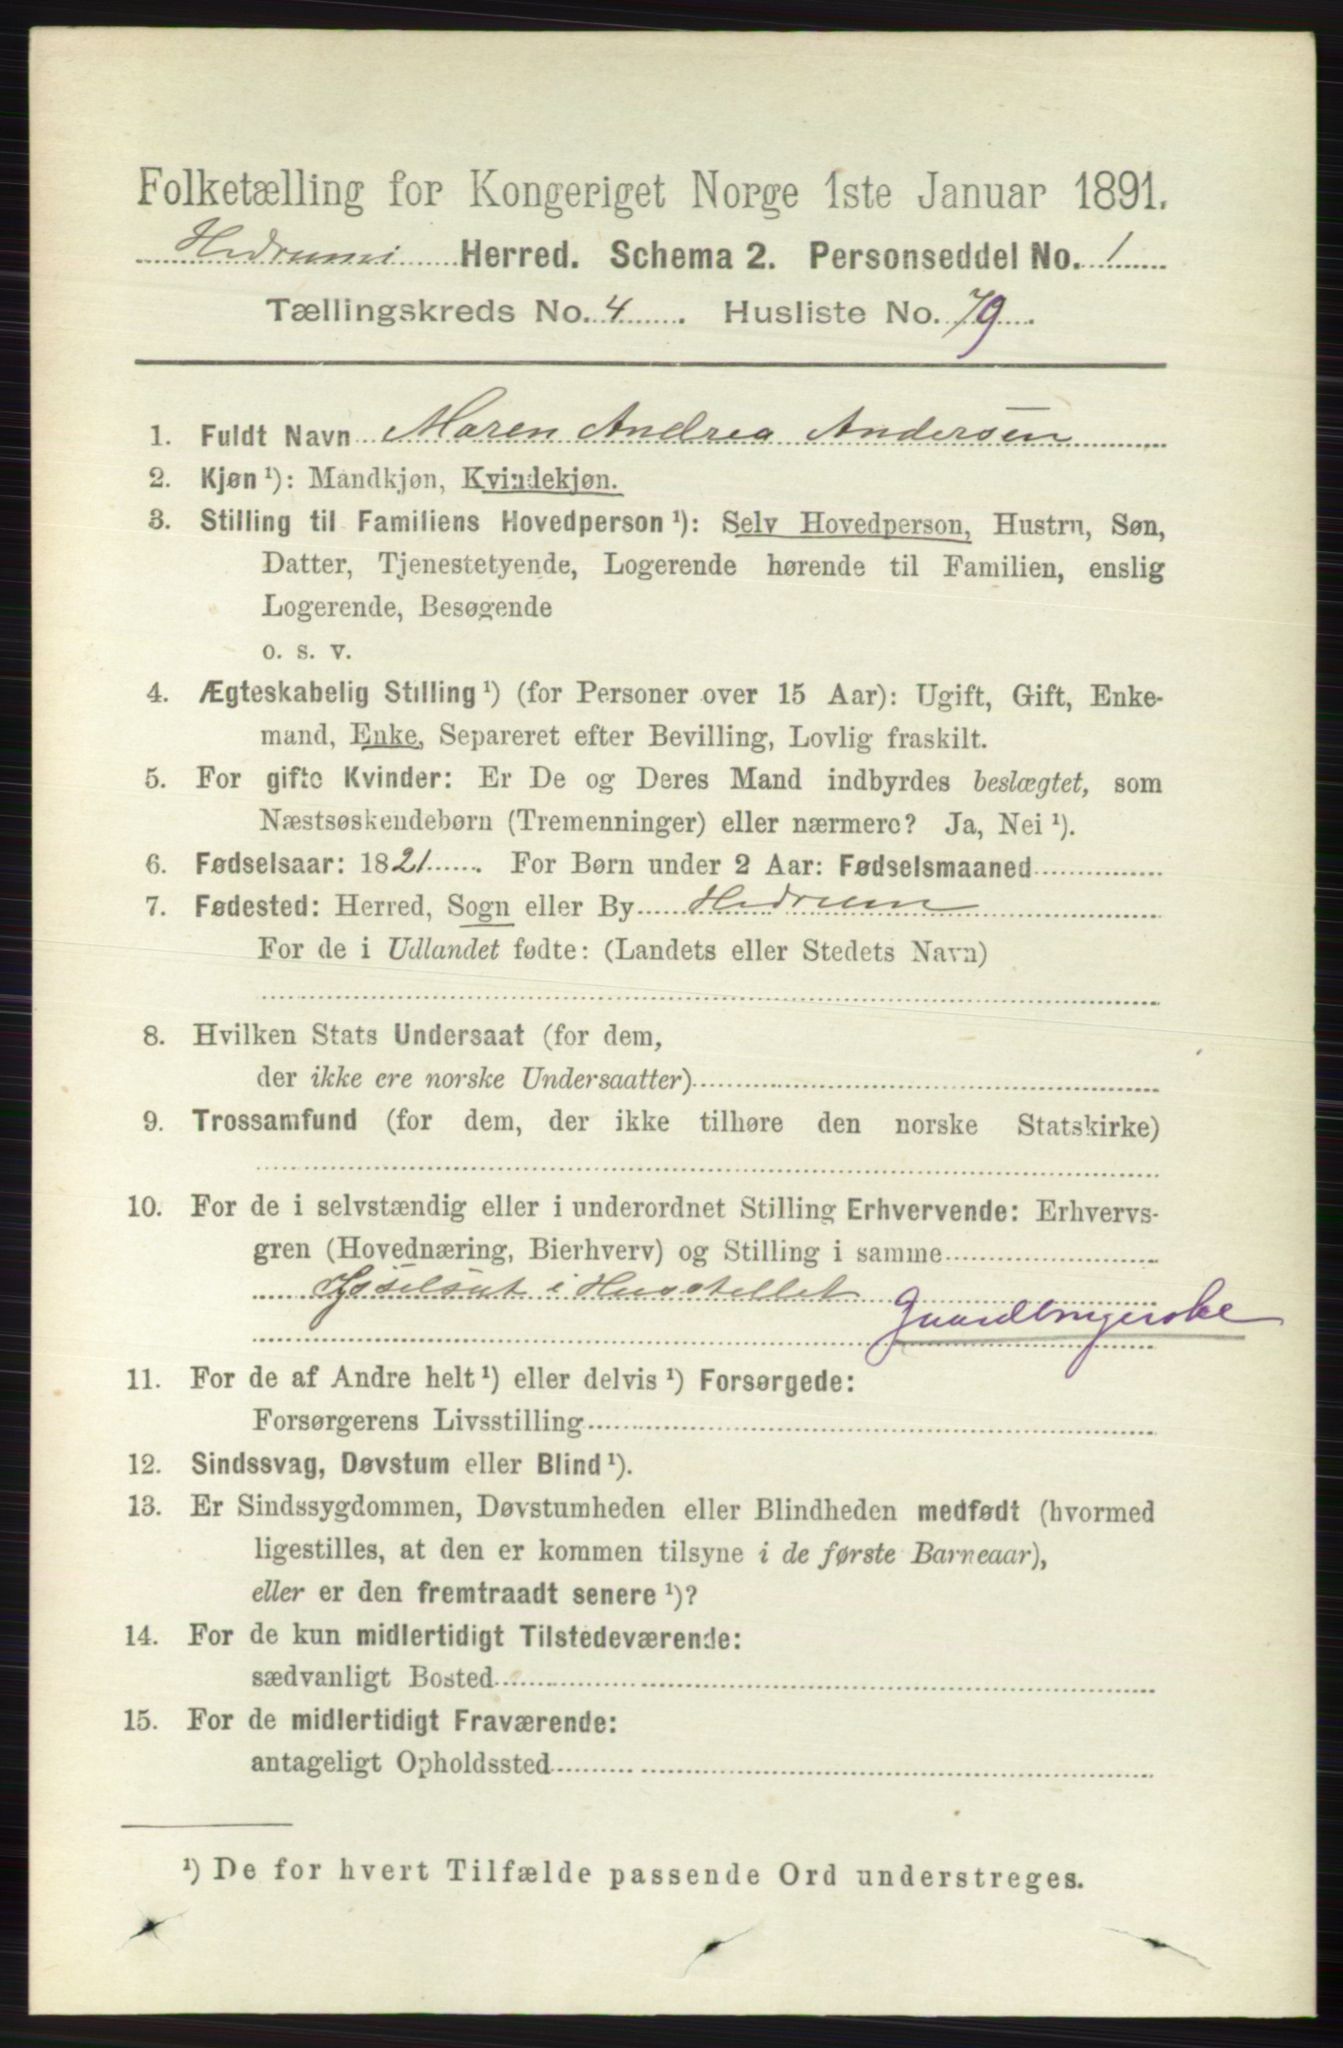 Folketælling for Kongeriget Norge 1ste Januar 1891.
Hedrum Herred. Schema 2. Personseddel No. 1
Tællingskreds No. 4. Husliste No. 79.
1. Fuldt Navn Maren Andrea Andersen
2. Kjøn ¹): Mandkjøn, Kvindekjøn.
3. Stilling til Familiens Hovedperson ¹): Selv Hovedperson, Hustru, Søn,
Datter, Tjenestetyende, Logerende hørende til Familien, enslig
Logerende, Besøgende
o. s. v.
4. Ægteskabelig Stilling ¹) (for Personer over 15 Aar): Ugift, Gift, Enke-
mand, Enke, Separeret efter Bevilling, Lovlig fraskilt.
5. For gifte Kvinder: Er De og Deres Mand indbyrdes beslægtet, som
Næstsøskendebørn (Tremenninger) eller nærmere? Ja, Nei ¹).
6. Fødselsaar: 1821. For Børn under 2 Aar: Fødselsmaaned
7. Fødested: Herred, Sogn eller By Hedrum
For de i Udlandet fødte: (Landets eller Stedets Navn)
8. Hvilken Stats Undersaat (for dem,
der ikke ere norske Undersaatter)
9. Trossamfund (for dem, der ikke tilhøre den norske Statskirke)
10. For de i selvstændig eller i underordnet Stilling Erhvervende: Erhvervs-
gren (Hovednæring, Bierhverv) og Stilling i samme
Sysselsat i Husstellet Gaardbrugerske
11. For de af Andre helt ¹) eller delvis ¹) Forsørgede:
Forsørgerens Livsstilling
12. Sindssvag, Døvstum eller Blind ¹).
13. Er Sindssygdommen, Døvstumheden eller Blindheden medfødt (hvormed
ligestilles, at den er kommen tilsyne i de første Barneaar),
eller er den fremtraadt senere ¹)?
14. For de kun midlertidigt Tilstedeværende:
sædvanligt Bosted
15. For de midlertidigt Fraværende:
antageligt Opholdssted
¹) De for hvert Tilfælde passende Ord understreges.